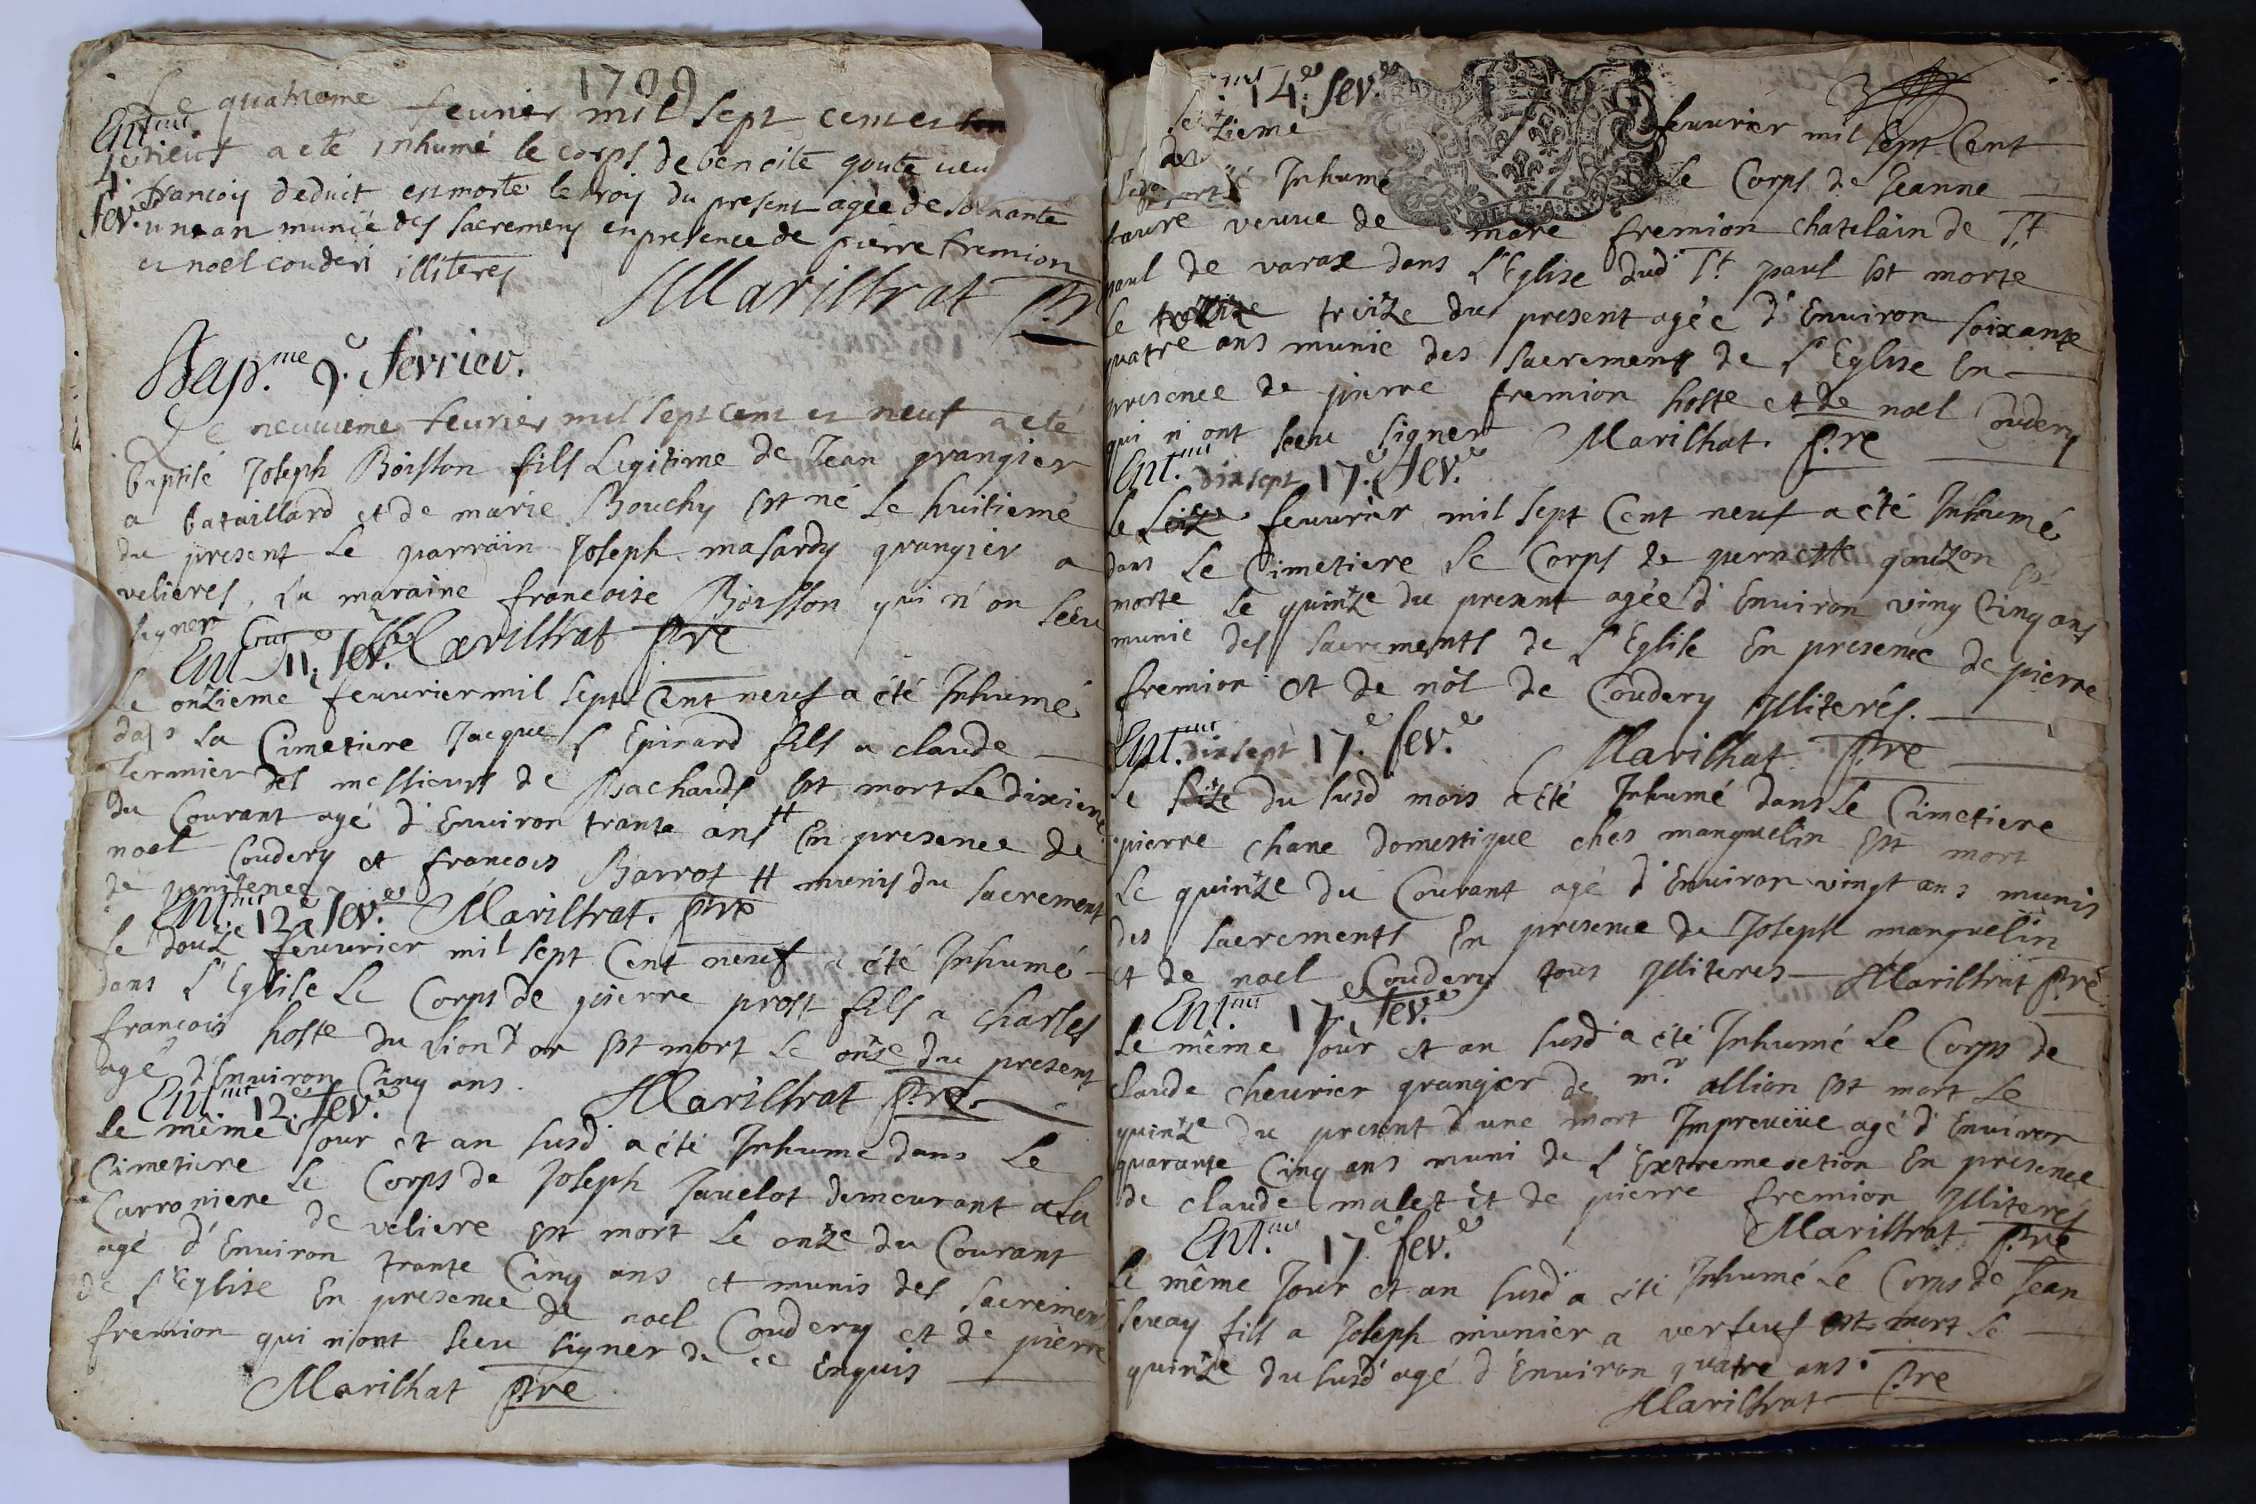 1709
Le quatrieme feurier mil sept cent et
Ent.
4e
fev.
neuf a eté inhumé le corps de benoite goute
francois deduit est morte le trois du present agée de soixante
un an munie des sacremens en presence de pierre fremion
et noel couderi illiteres
Marilhat ptre
Bap.me 9.e fevrier.
Le neuuieme feurier mil sept cent et neuf a eté
Baptisé Joseph Boisson fils Legitime de Jean grangier
a Bataillard et de marie Bouchy Est né le huitieme
du present le parrain Joseph masardy grangier a
velieres, La maraine francoise Boisson qui n'on sceu
signer Marilhat ptre
Ent. 11.e fev.e
Le onzieme feuurier mil sept Cent neuf a été Inhumé
dans La Cimetiere Jacque L'Epinard fils a claude
fermier des messieurs de Bachauds Est mort Le dixieme
du Courant agé d'Environ trante ans # En presence de
noel Coudery et francois Barrot # munis du sacrement
de penitence Marilhat. ptre
Ent. 12.e fev.e
Le douze feuurier mil sept Cent neuf a été Inhumé
dans L'Eglise Le Corps de pierre prost fils a charles
francois hoste du Lion d'or Est mort Le onze du present
agé d'Environ Cinq ans. Marilhat ptre
Ent. 12.e fev.e
Le même Jour et an susd a été Inhumé dans Le
Cimetiere Le Corps de Joseph Jauelot demeurant a La
Carroniere de veliere Est mort Le onze du Courant
agé d'Environ trante Cinq ans et munis des sacrements
de L'Eglise En presence de noel Coudery et de pierre
fremion qui n'ont sceu signer de ce Enquis
Marilhat ptre
14.e fev.e
feuurier mil sept Cent
Inhumé Le Corps de Jeanne
faure veuue de marc fremion chatelain de St
paul de varax dans L'Eglise dud St paul Est morte
Le treize treize du present agée d'Environ soixante
quatre ans munie des sacrements de L'Eglise En
presence de pierre fremion hoste et de noel Coudery
qui n'ont sceu signer Marilhat. ptre
Ent. 17.e fev.e
dixsept
Le seize feuurier mil sept Cent neuf a été Inhumé
dans Le Cimetiere Le Corps de pernette gouzon Est
morte Le quinze du present agée d'Environ ving Cinq ans
munie des sacrements de L'Eglise En presence de pierre
fremion et de nöl de Coudery Illiterés.
Marilhat ptre
Ent. 17.e fev.e
dixsept
Le seize du susd mois a été Inhumé dans Le Cimetiere
pierre chane domestique ches manguelin Est mort
Le quinze du Courant agé d'Environ vingt ans munis
des sacrements En presence de Joseph manguelin
et de noel Coudery tous Illiteres Marilhat ptre
Ent. 17.e fev.e
Le même Jour et an susd a été Inhumé Le Corps de
claude cheurier grangier de mr allion Est mort Le
quinze du present d'une mort Impreueüe agé d'Environ
quarante Cinq ans muni de L'Extreme oction En presence
de claude malet et de pierre fremion Illiteres
Marilhat ptre
Ent. 17.e fev.e
Le même Jour et an susd a été Inhumé Le Corps de Jean
seuay fils a Joseph munier a verfeuf est mort Le
quinze du susd agé d'Environ quatre ans.
Marilhat ptre